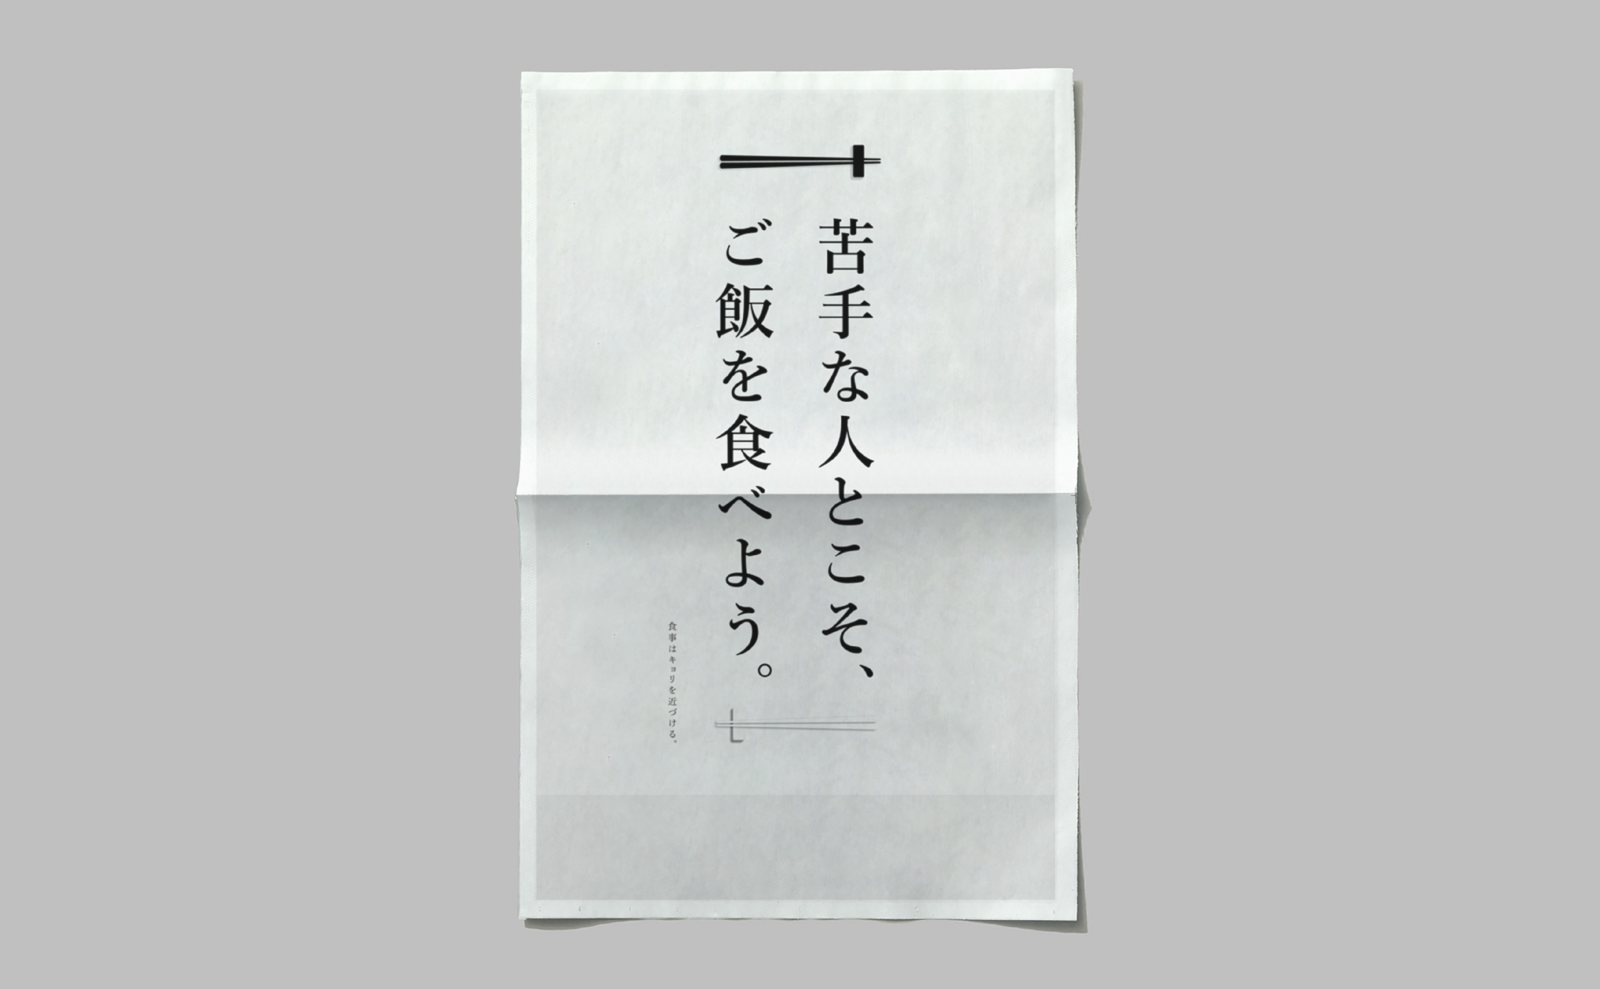 苦手な人とこそ、
ご飯を食べよう。
食事はキョリを近づける。